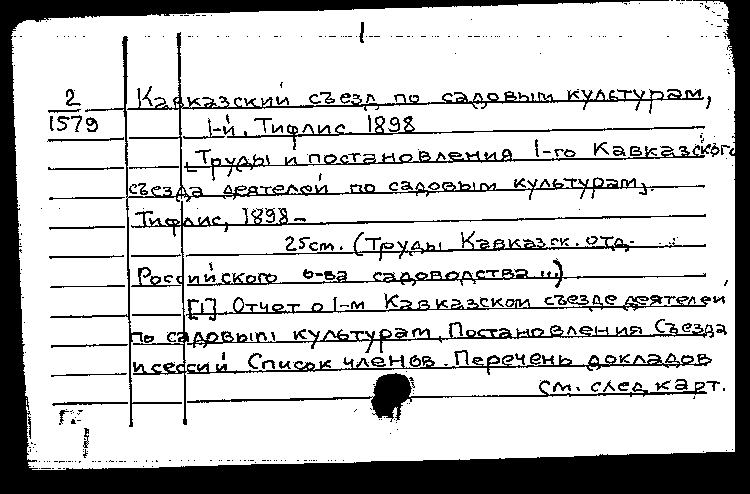 1
2 Кавказский съезд по садовым культурам,
1579 1-й. Тифлис. 1898
[Труды и постановления 1-го Кавказского
съезда деятелей по садовым культурам].
Тифлис, 1898-
25см. (Труды Кавказск. отд.
Российского о-ва садоводства...)
[1] Отчет о 1-м Кавказском съезде деятелей
по садовым культурам. Постановления Съезда
и сессий. Список членов. Перечень докладов
см. след карт.